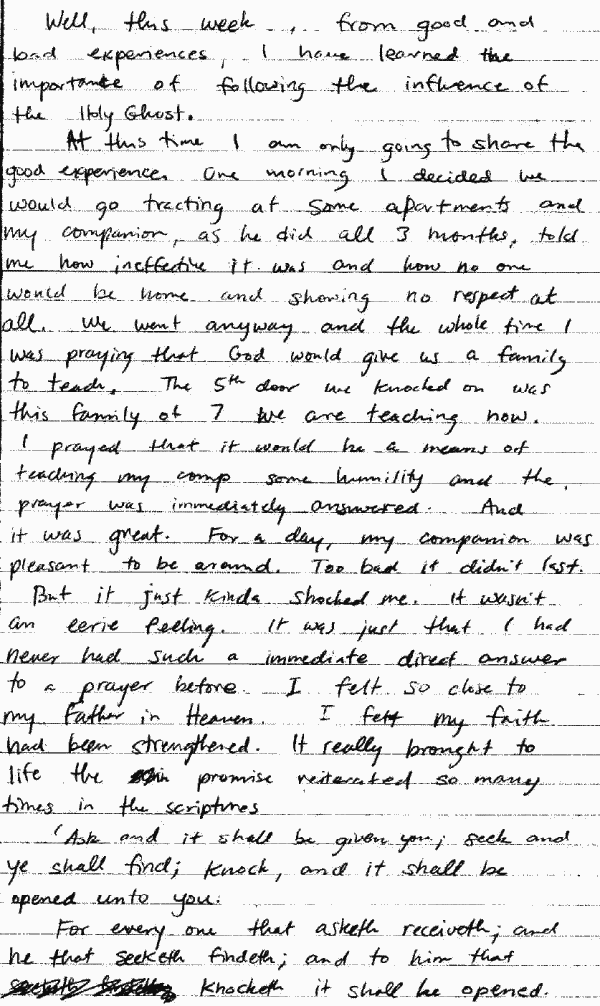 Well, this week , from good and
bad experiences, I have learned the
importance of following the influence of
the Holy Ghost.
At this time I am only going to share the
good experience. One morning I decided we
would go tracting at some apartments and
my companion, as he did all 3 months, told
me how ineffective it was and how no one
would be home and showing no respect at
all. We went anyway and the whole time I
was praying that God would give us a family
to teach. The 5th door we knocked on was
this family of 7 we are teaching now.
I prayed that it would be a means of
teaching my comp some humility and the
prayer was immediately answered. And
it was great. For a day, my companion was
pleasant to be around. Too bad it didn't last.
But it just kinda shocked me. It wasn't
an eerie feeling. It was just that I had
never had such a immediate direct answer
to a prayer before. I felt so close to
my Father in Heaven. I felt my faith
had been strengthened. It really brought to
life the promise reiterated so many
times in the scriptures
'Ask and it shall be given you; seek and
ye shall find; knock, and it shall be
opened unto you:
For every one that asketh receiveth; and
he that seeketh findeth; and to him that
knocketh it shall be opened.